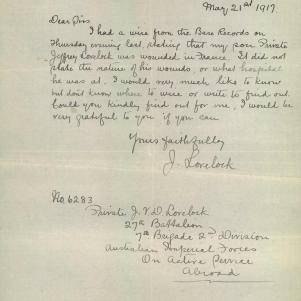 May 21st 1917.
Dear Sirs
I had a wire from the Base Records on
Thursday evening last, stating that my son Private
Jeffrey Lovelock was wounded in France. It did not
state the nature of his wounds, or what hospital
he was at. I would very much like to know
but don't know where to wire or write to find out.
Could you kindly find out for me, I would be
very grateful to you if you can
Yours faithfully
J. Lovelock
No 6283
Private J. V. D. Lovelock
27th Battalion
7th Brigade 2nd Division
Australian Imperial Forces
On Active Service
Abroad